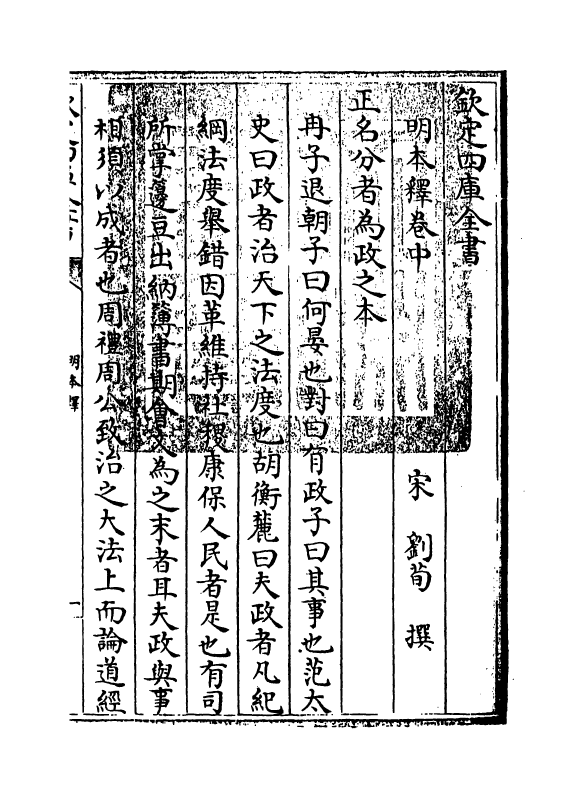 欽定四庫全書
明本釋卷中
宋 劉荀 撰
正名分者為政之本
冉子退朝子曰何晏也對曰有政子曰其事也范太
史曰政者治天下之法度也胡衡麓曰夫政者凡紀
綱法度舉錯因革維持社稷康保人民者是也有司
所掌籩豆出納簿書期會文為之末者耳夫政與事
相須以成者也周禮周公致治之大法上而論道經
明本釋